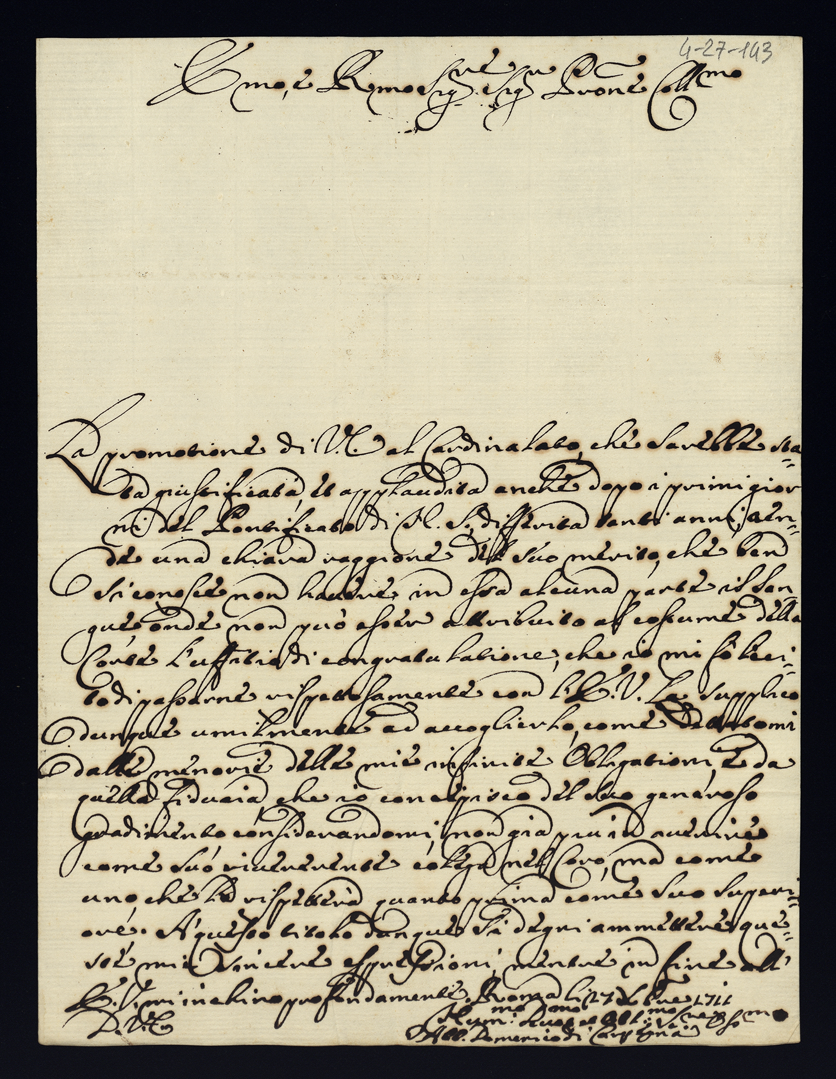 4-27-143
E.mo, e R.mo Sig.re Sig.r P.rone Coll.mo
La promotione di V.E. al Cardinalato, che sarebbe sta=
ta giustificata, et applaudita anche dopo i primi gior
ni del Pontificato di N. S. differita tanti anni, ren=
de una chiara raggione del suo merito, che ben
si conosce non havere in essa alcuna parte il San=
gue onde non può esser attribuito al costume della
Corte l'uffitio di congratulatione, che io mi fò leci=
to di passarne rispettosamente con l'E.V. La supplico
dunque umilmente ad accoglierlo, come dettatomi
dalle memorie delle mie infinite Obligationi, e da
quella fiducia che io concepisco del suo generoso
gradimento considerandomi, non già più in avvenire
come suo riverente collega nel Coro, ma come
uno, che la rispetterà quanto prima come suo Superi=
ore. A questo titolo dunque si degni ammettere que=
ste mie sincere espressioni, mentre in fine all'
E. V. m'inchino profondamente. Roma li 27 1711
D. V. E.
Hum.mo Dev.mo et Obl.mo Ser.re
Domenico di Carpegna